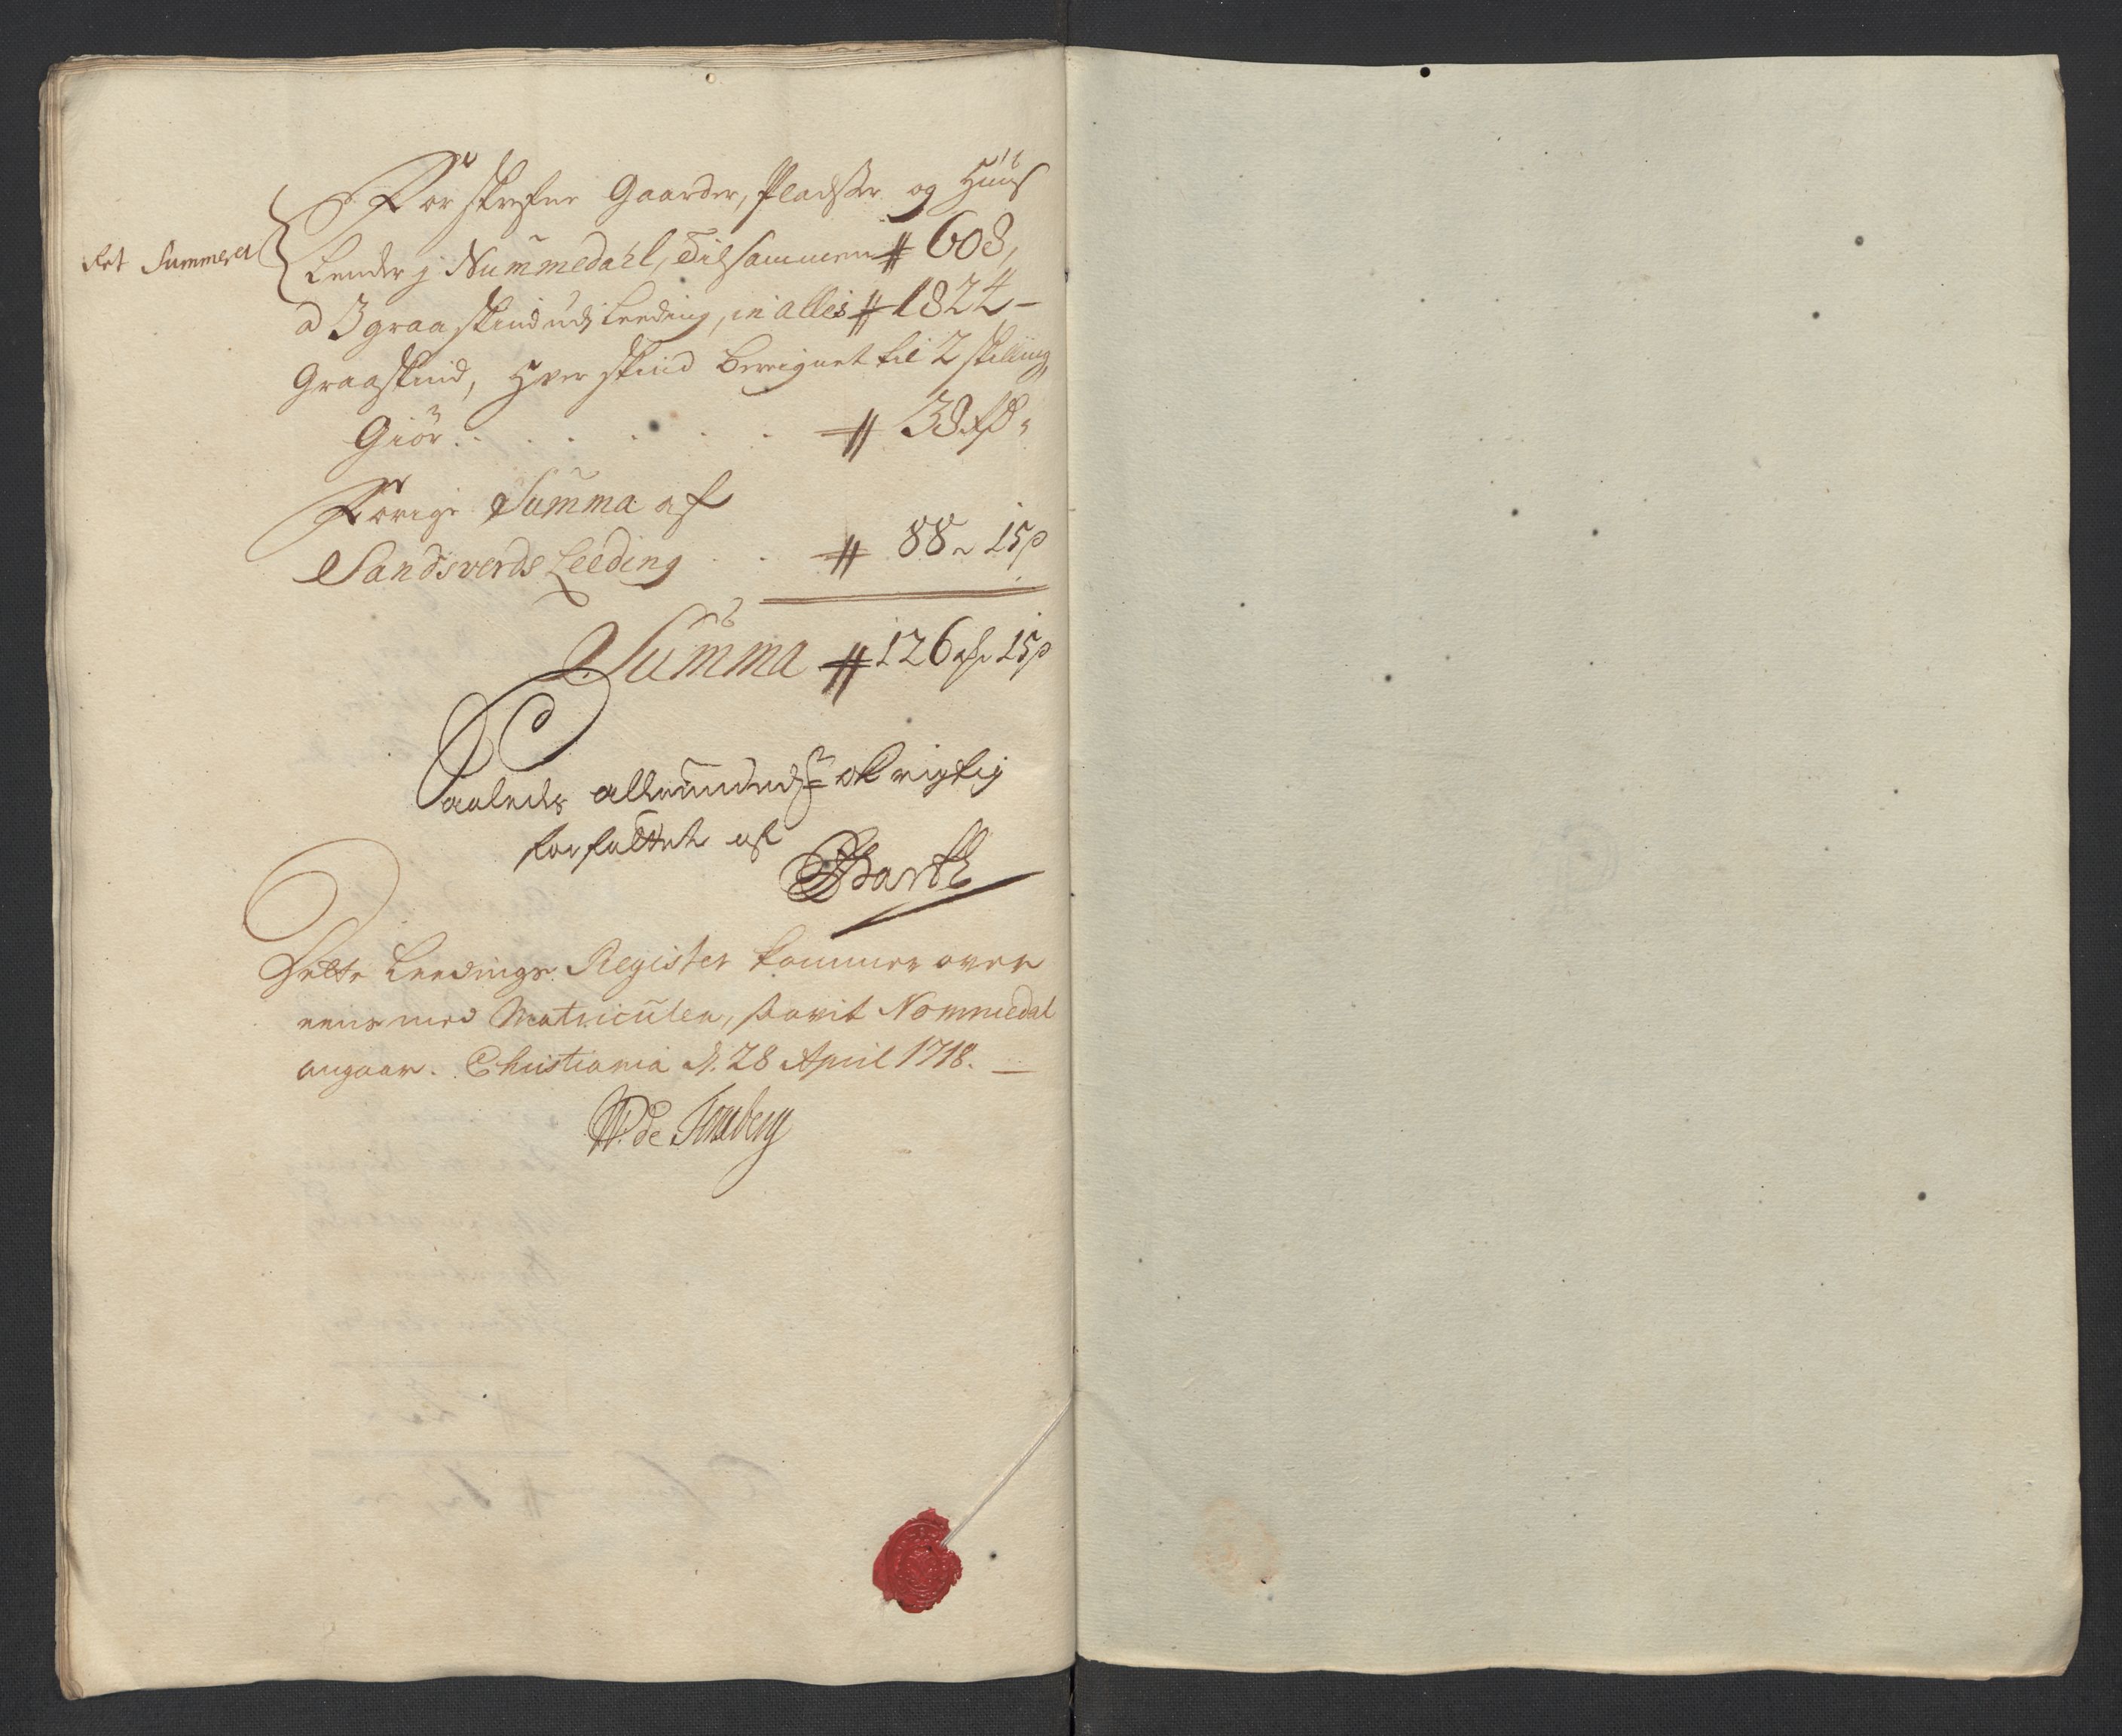 Forskrefne Gaarder, Pladser og Huus
Ret Summeret
Lender j Nummedahl, Tilsammen # 608,
a 3 graaskind udj Leeding, in alles # 1824 –
Graaskind, Hver skind bereignet til 2 skilling,
Giör . . . . . . # 38 rd „
Forige Summa af
Sandsverds Leeding . . # 88 „ 15 β
Summa # 126 rdr 15 β
Saaledes allerunderdst og rigtig
forfattet af
Barth
Dette Leedings Register kommer over
eens med Matriculen, saavit Nommedal
angaar. Christiania d. 28 April 1718. —
W. de Tonsberg